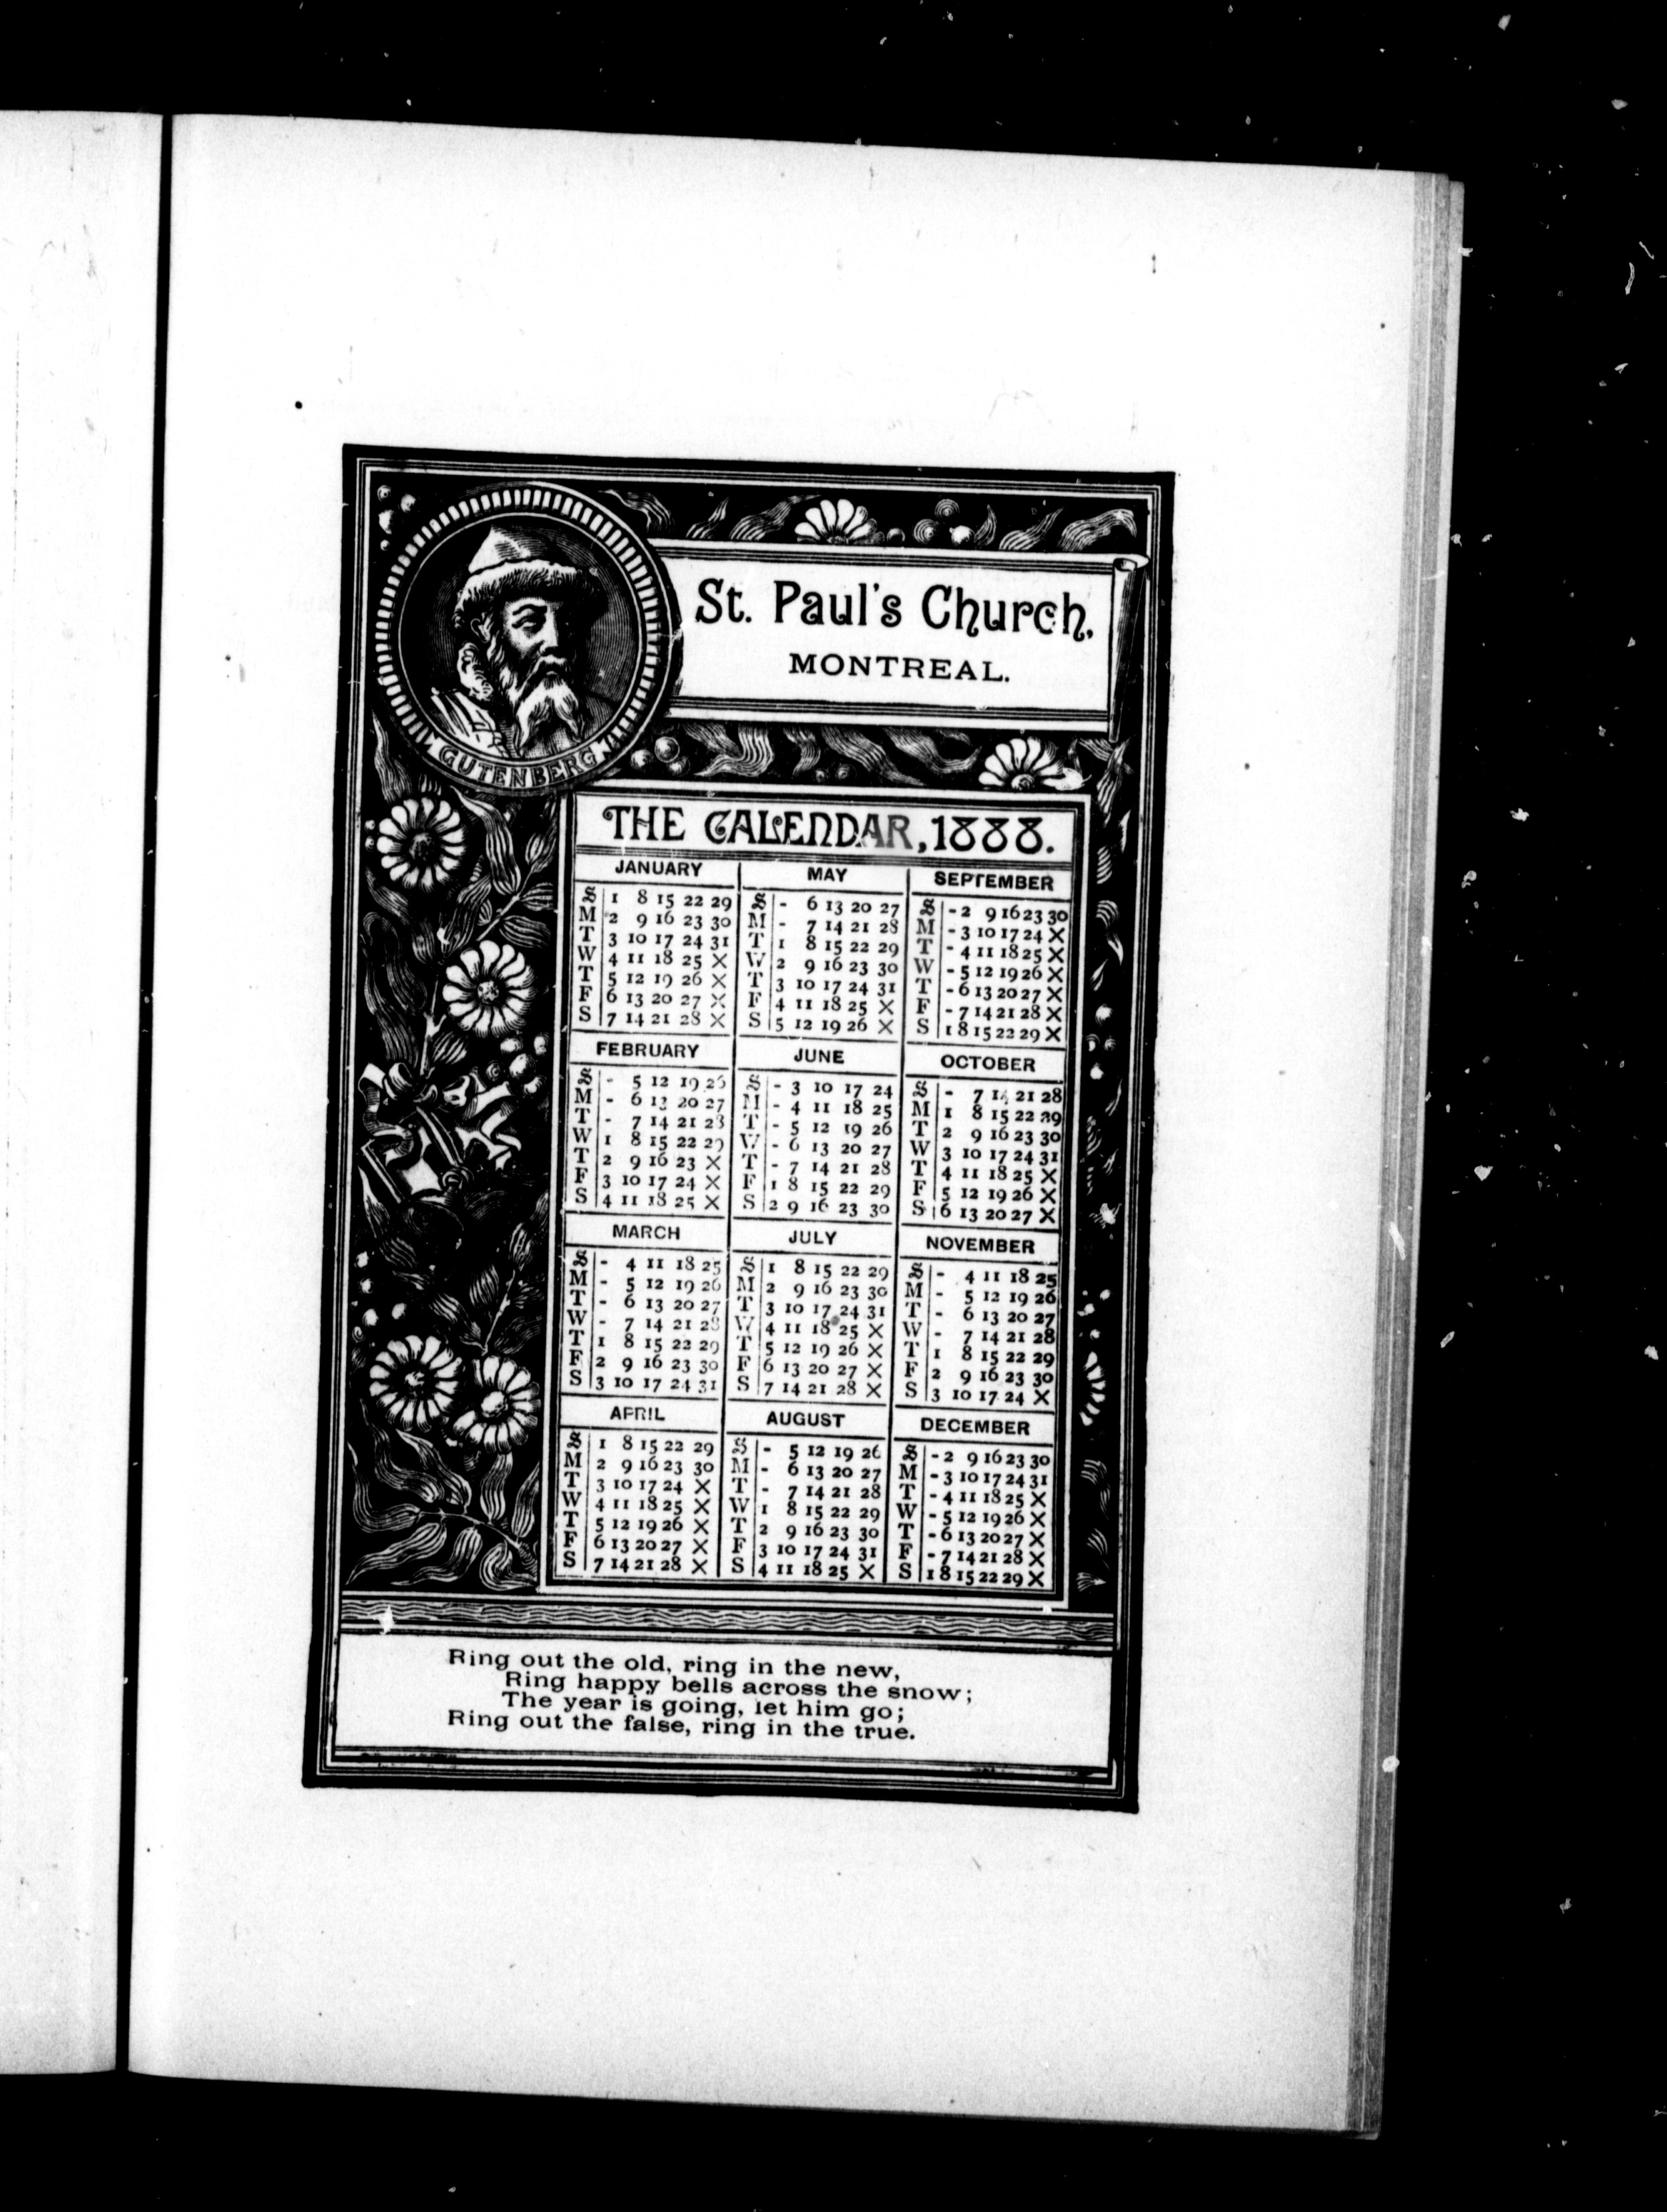 St. Paul's Church,
MONTREAL.
GUTENBERG
THE CALENDAR, 1888.
JANUARY
S 1 8 15 22 29
M 2 9 16 23 30
T 3 10 17 24 31
W 4 11 18 25 X
T 5 12 19 26 X
F 6 13 20 27 X
S 7 14 21 28 X
FEBRUARY
S - 5 12 19 26
M - 6 13 20 27
T - 7 14 21 28
W 1 8 15 22 29
T 2 9 16 23 X
F 3 10 17 24 X
S 4 11 18 25 X
MARCH
S - 4 11 18 25
M - 5 12 19 26
T - 6 13 20 27
W - 7 14 21 28
T 1 8 15 22 29
F 2 9 16 23 30
S 3 10 17 24 31
APRIL
S 1 8 15 22 29
M 2 9 16 23 30
T 3 10 17 24 X
W 4 11 18 25 X
T 5 12 19 26 X
F 6 13 20 27 X
S 7 14 21 28 X
MAY
S - 6 13 20 27
M - 7 14 21 28
T 1 8 15 22 29
W 2 9 16 23 30
T 3 10 17 24 31
F 4 11 18 25 X
S 5 12 19 26 X
JUNE
S - 3 10 17 24
M - 4 11 18 25
T - 5 12 19 26
W - 6 13 20 27
T - 7 14 21 28
F 1 8 15 22 29
S 2 9 16 23 30
JULY
S 1 8 15 22 29
M 2 9 16 23 30
T 3 10 17 24 31
W 4 11 18 25 X
T 5 12 19 26 X
F 6 13 20 27 X
S 7 14 21 28 X
AUGUST
S - 5 12 19 26
M - 6 13 20 27
T - 7 14 21 28
W 1 8 15 22 29
T 2 9 16 23 30
F 3 10 17 24 31
S 4 11 18 25 X
SEPTEMBER
S - 2 9 16 23 30
M - 3 10 17 24 X
T - 4 11 18 25 X
W - 5 12 19 26 X
T - 6 13 20 27 X
F - 7 14 21 28 X
S 1 8 15 22 29 X
OCTOBER
S - 7 14 21 28
M 1 8 15 22 29
T 2 9 16 23 30
W 3 10 17 24 31
T 4 11 18 25 X
F 5 12 19 26 X
S 6 13 20 27 X
NOVEMBER
S - 4 11 18 25
M - 5 12 19 26
T - 6 13 20 27
W - 7 14 21 28
T 1 8 15 22 29
F 2 9 16 23 30
S 3 10 17 24 X
DECEMBER
S - 2 9 16 23 30
M - 3 10 17 24 31
T - 4 11 18 25 X
W - 5 12 19 26 X
T - 6 13 20 27 X
F - 7 14 21 28 X
S 1 8 15 22 29 X
Ring out the old, ring in the new,
Ring happy bells across the snow;
The year is going, let him go;
Ring out the false, ring in the true.